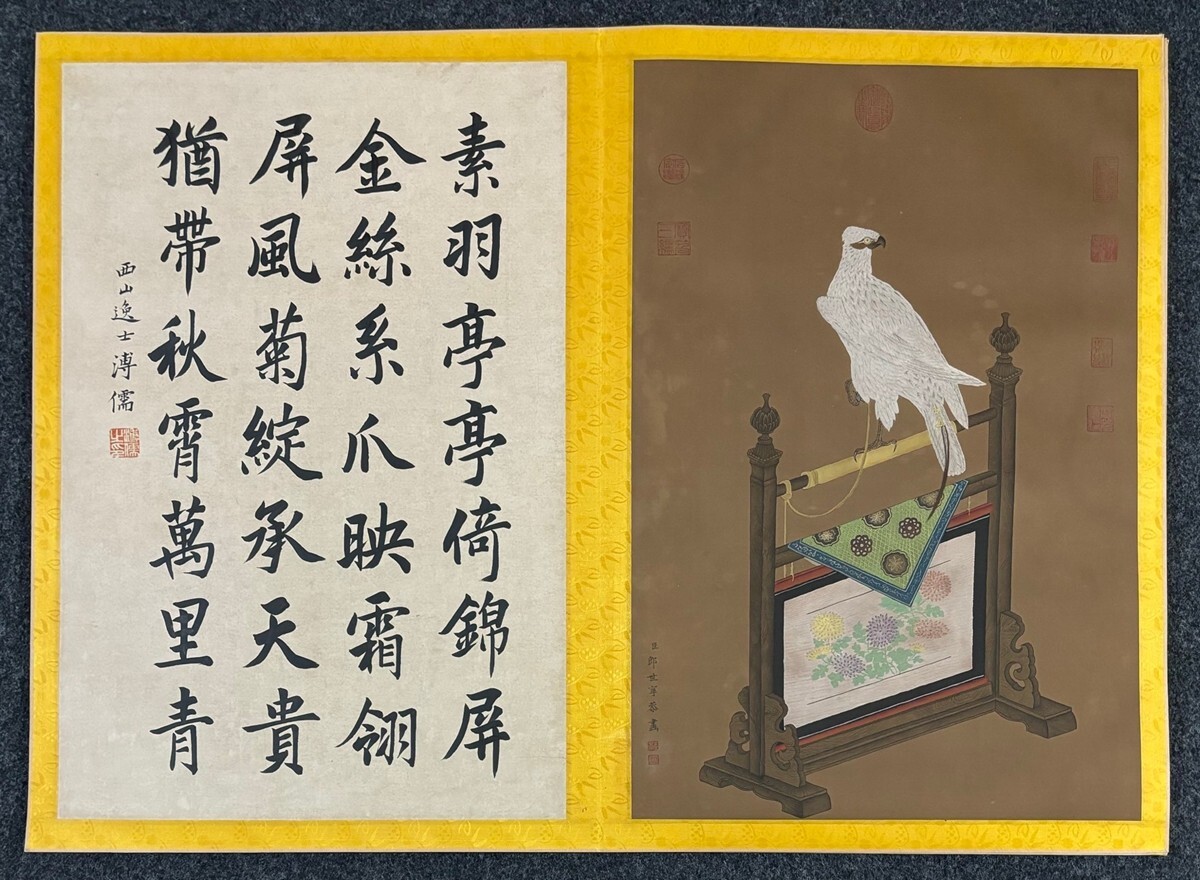 素羽亭亭倚錦屏
金絲系爪映霜翎
屏風菊綻承天貴
猶帶秋霄萬里青
西山逸士溥儒
臣郎世寧恭畫